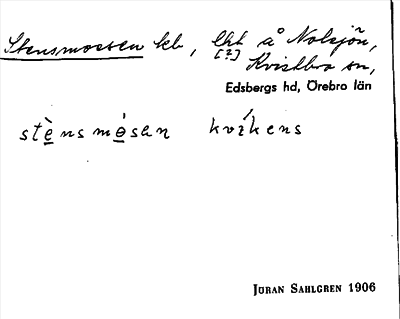 Stensmossen kb, Eht å Nolsjön,
[?] Kvistbro sn,
Edsbergs hd, Örebro län
stènsmósen kvíkens
JÖRAN SAHLGREN 1906